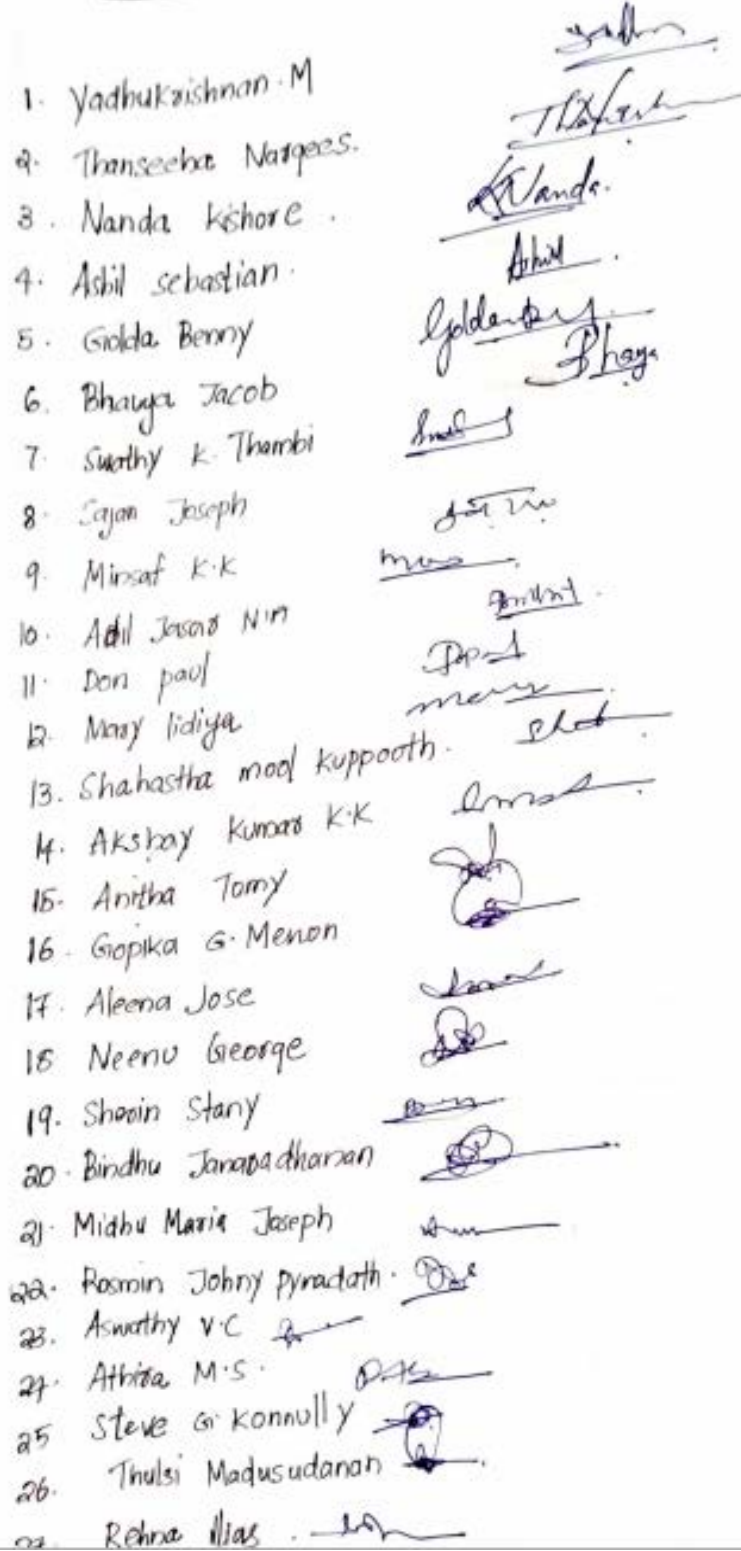 1. Yadhukrishnan.M
2. Thanseeha Nargees.
3. Nanda Kishore. Nanda.
4. Ashil sebastian. Ashil.
5. Golda Benny
6. Bhavya Jacob Bhaya
7. Swathy K. Thambi
8. Sajan Joseph
9. Minsaf K.K
10. Adil Jasar N.M
11. Don paul
12. Mary lidiya
13. Shahastha mool kuppooth.
14. Akshay Kumar K.K
15. Anitha Tomy
16. Gopika G. Menon
17. Aleena Jose
18 Neenu George
19. Sherin Stany
20. Bindhu Janaradhanan
21. Midhu Maria Joseph
22. Rosmin Johny pynadath.
23. Aswathy V.C
24. Athira M.S.
25 Steve G. Konnully
26. Thulsi Madusudanan
27. Rehna Ilias.